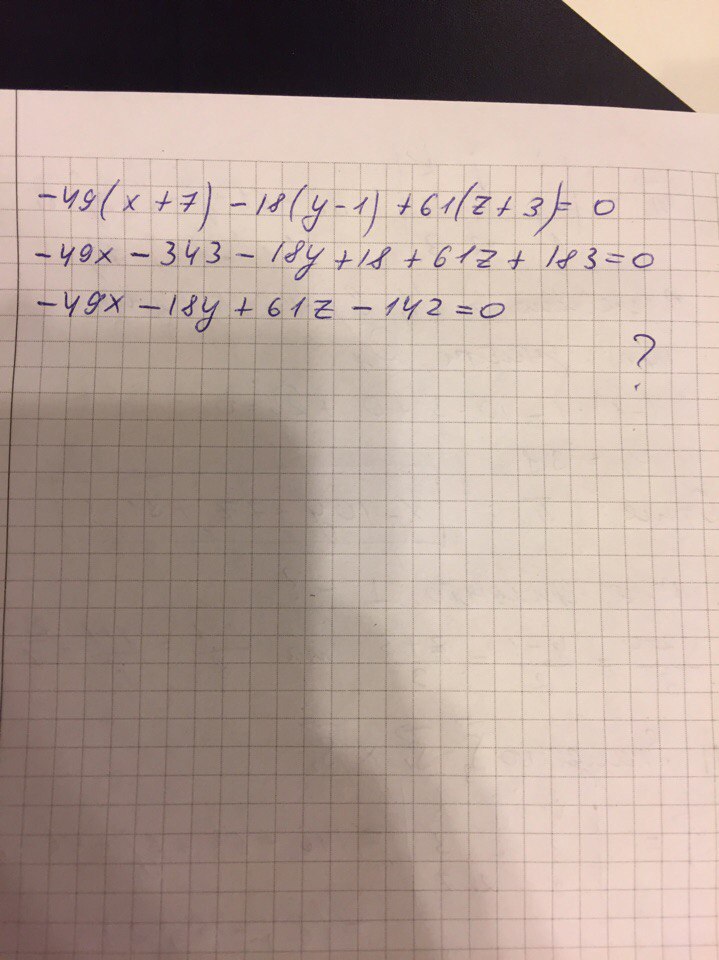 -49(x+7)-18(y-1)+61(z+3)=0
-49x-343-18y+18+61z+183=0
-49x-18y+61z-142=0
?